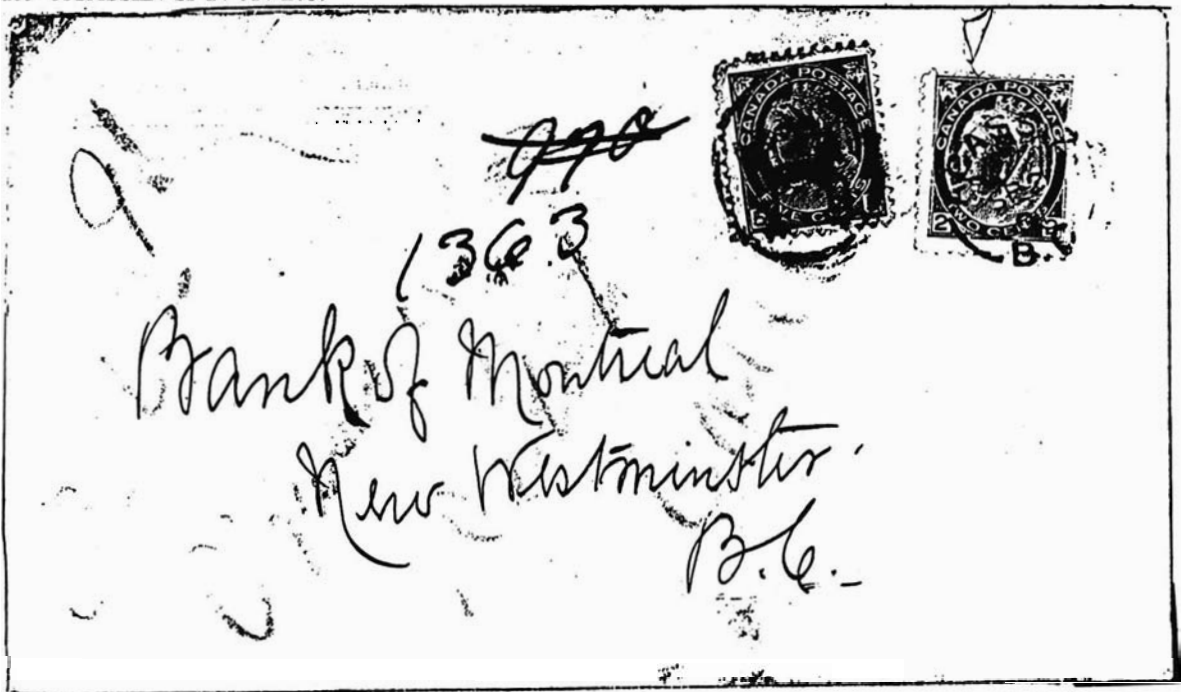 CANADA POSTAGE
CANADA POSTAGE
2
TWO CENTS
B.
990
1363
Bank of Montreal
New Westminster.
B.C.